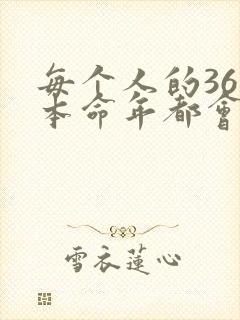 每个人的36
本命年都會
雪衣蓮心